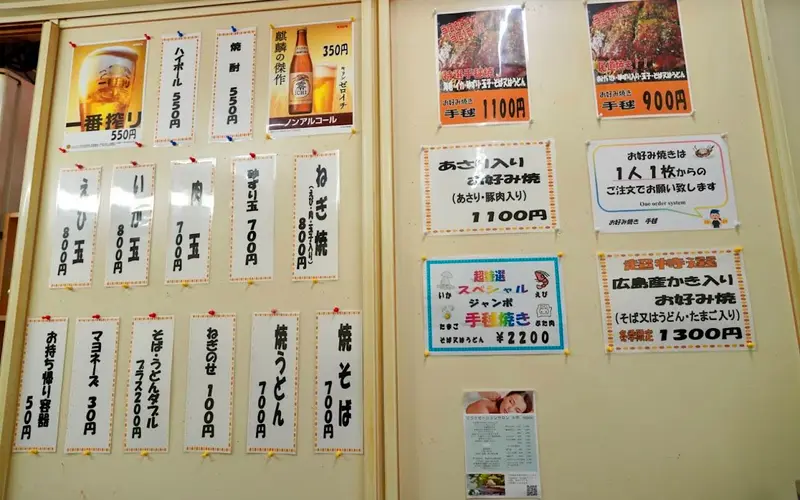 一番搾り
550円
ハイボール 550円
焼酎 550円
麒麟の傑作
350円
キリン
ゼロイチ
ノンアルコール
えび玉 800円
いか玉 800円
肉玉 700円
砂ずり玉 700円
ねぎ焼
(えび・肉・玉子入り)
800円
お持ち帰り容器 50円
マヨネーズ 30円
そば・うどんダブル
プラス200円
ねぎのせ 100円
焼うどん 700円
焼そば 700円
お好み焼き
手毬 1100円
お好み焼き
手毬 900円
あさり入り
お好み焼
(あさり・豚肉入り)
1100円
お好み焼きは
1人1枚からの
ご注文でお願い致します
One order system
お好み焼き 手毬
超特選
いか スペシャル えび
ジャンボ
たまご 手毬焼き ぶた肉
そば又はうどん ¥2200
超特選
広島産かき入り
お好み焼
(そば又はうどん・たまご入り)
冬季限定 1300円